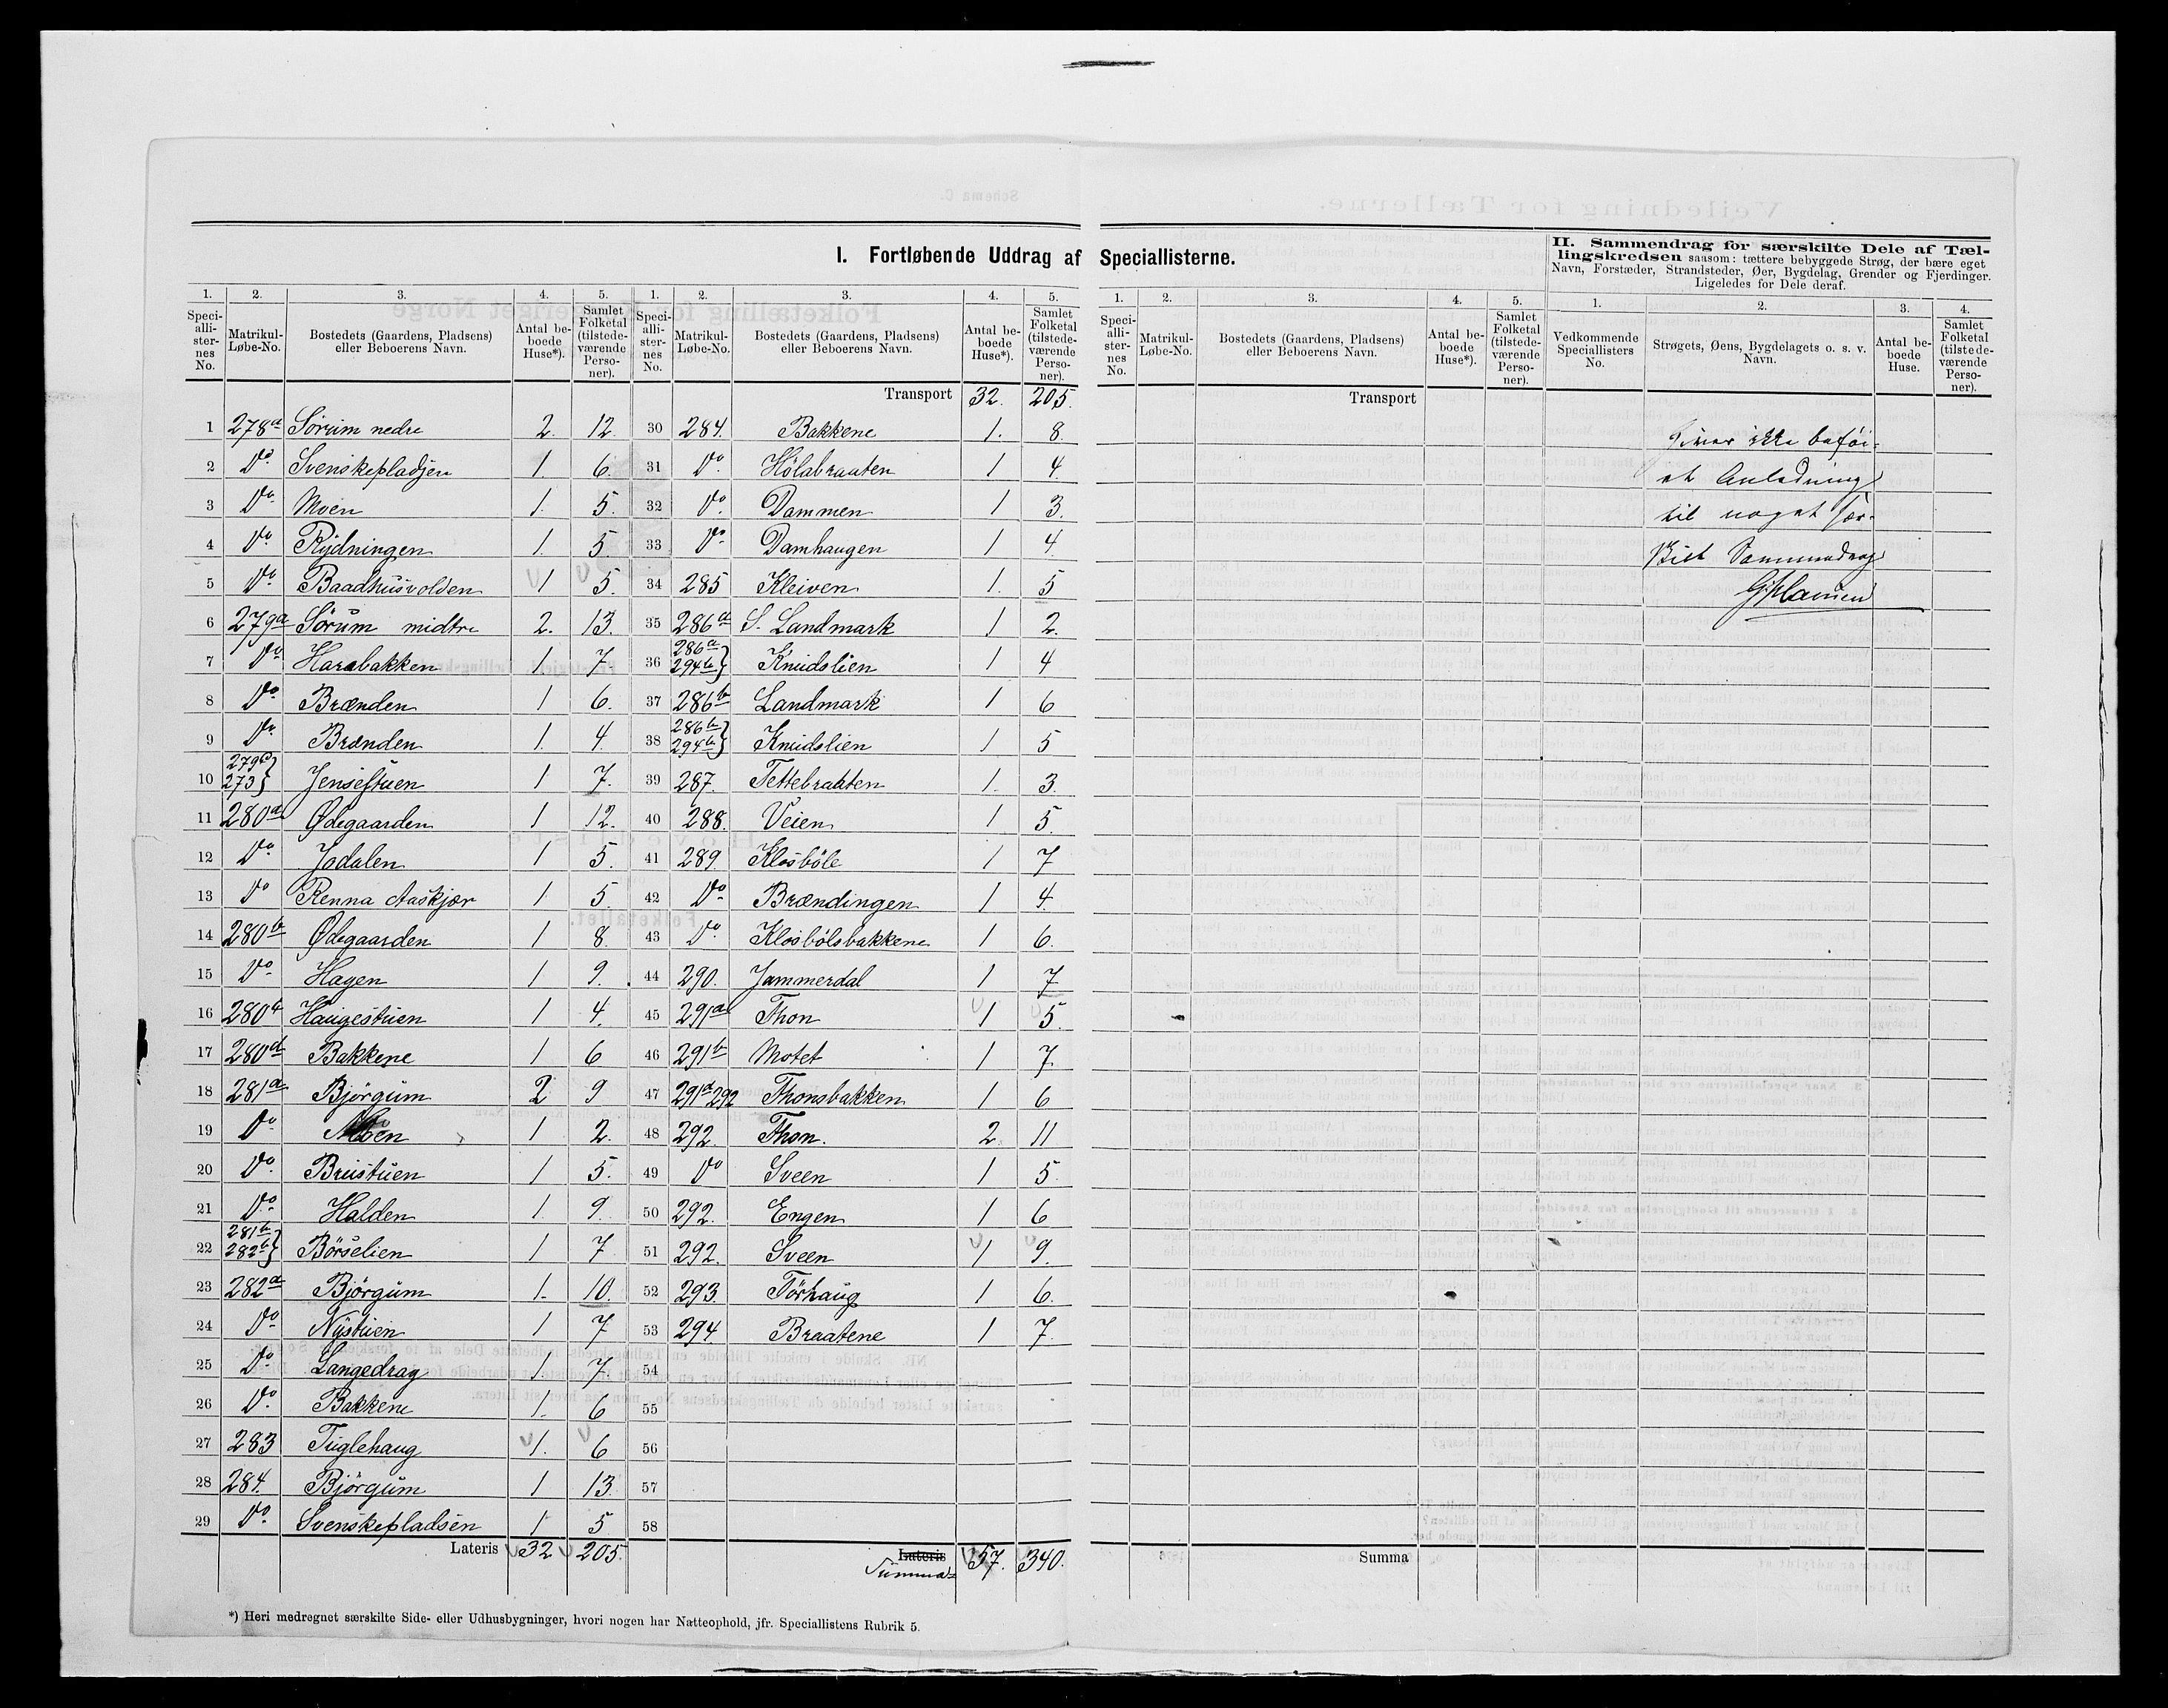 I. Fortløbende Uddrag af Speciallisterne.
II. Sammendrag for særskilte Dele af Tællingskredsen saasom: tættere bebyggede Strøg, der bære eget
Navn, Forstæder, Strandsteder, Øer, Bygdelag, Grender og Fjerdinger.
Ligeledes for Dele deraf.
1. 2. 3. 4. 5. 1. 2. 3. 4. 5. 1. 2. 3. 4. 5. 1. 2. 3. 4.
Speciallisternes No. Matrikul-Løbe-No. Bostedets (Gaardens, Pladsens) eller Beboerens Navn. Antal beboede Huse*). Samlet Folketal (tilstedeværende Personer).
Speciallisternes No. Matrikul-Løbe-No. Bostedets (Gaardens, Pladsens) eller Beboerens Navn. Antal beboede Huse*). Samlet Folketal (tilstedeværende Personer).
Speciallisternes No. Matrikul-Løbe-No. Bostedets (Gaardens, Pladsens) eller Beboerens Navn. Antal beboede Huse*). Samlet Folketal (tilstedeværende Personer).
Vedkommende Speciallisters No. Strøgets, Øens, Bygdelagets o. s. v. Navn. Antal beboede Huse. Samlet Folketal (tilstedeværende Personer).
Transport 32. 205.
Transport
1 278a Sörum nedre 2. 12.
2 Do Svenskepladsen 1. 6.
3 Do Moen 1. 5.
4 Do Rydningen 1. 5.
5 Do Baadhusvolden 1 5.
6 279a Sörum midtre 2. 13.
7 Do Harabakken 1. 7
8 Do Brænden 1 6.
9 Do Brænden 1. 4.
10 279b 273 } Jensestuen 1 7.
11 280a Ødegaarden 1 12.
12 Do Jodalen 1 5.
13 Do Renna Aaskjær 1 5.
14 280b Ødegaarden 1 8.
15 Do Hagen 1 9.
16 280 Haugestuen 1 4.
17 280d Bakkene 1 6
18 281a Bjørgum 2 9
19 Do Moen 1 2.
20 Do Breistuen 1 5.
21 Do Halden 1. 9.
22 281b 282b } Börselien 1 7
23 282a Bjørgum 1. 10.
24 Do Nystuen 1 7
25 Do Langedrag 1. 7
26 Do Bakkene 1. 6
27 283 Tuglehaug 1. 6
28 284. Bjørgum 1 13.
29 Do Svenskepladsen 1 5
Lateris 32 205.
30 284. Bakkene 1. 8.
31 Do Hölabraaten 1 4.
32 Do Dammen 1 3.
33 Do Damhaugen 1 4.
34 285 Kleiven 1. 5
35 286a S. Landmark 1 2.
36 286a 294b } Knudslien 1 4
37 286b Landmark 1 6
38 286b 294b } Knudslien 1 5
39 287. Tettebraaten 1. 3.
40 288. Veien 1 5.
41 289 Klosböle 1 7
42 Do Brændingen 1 4.
43 Do Klosbölsbakkene 1 6.
44 290. Jammerdal 1 7
45 291a Thon 1 5.
46 291b Motet 1 7.
47 291a 292 Thonsbakken 1 6
48 292. Thon. 2. 11
49 Do Sveen 1 5.
50 292. Engen 1 6
51 292. Sveen 1 9.
52 293. Törhaug 1 6.
53 294 Braatene 1 7.
54
55
56
57
58
Lateris
Summa 57. 340.
Giver ikke beföi-
et Anledning
til noget sær-
skilt Sammendrag
Summa
*) Heri medregnet særskilte Side- eller Udhusbygninger, hvori nogen har Natteophold, jfr. Speciallistens Rubrik 5.